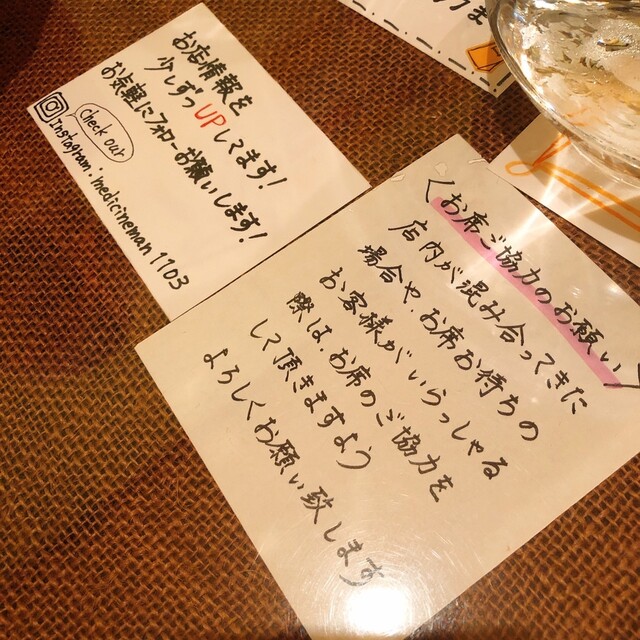 お店情報を
少しずつUPしてます!
お気軽にフォローお願いします!
Check out
Instagram. medicineman 1103
<お席ご協力のお願い>
店内が混み合ってきた
場合や、お席お待ちの
お客様がいらっしゃる
際は、お席のご協力を
して頂きますよう
よろしくお願い致します